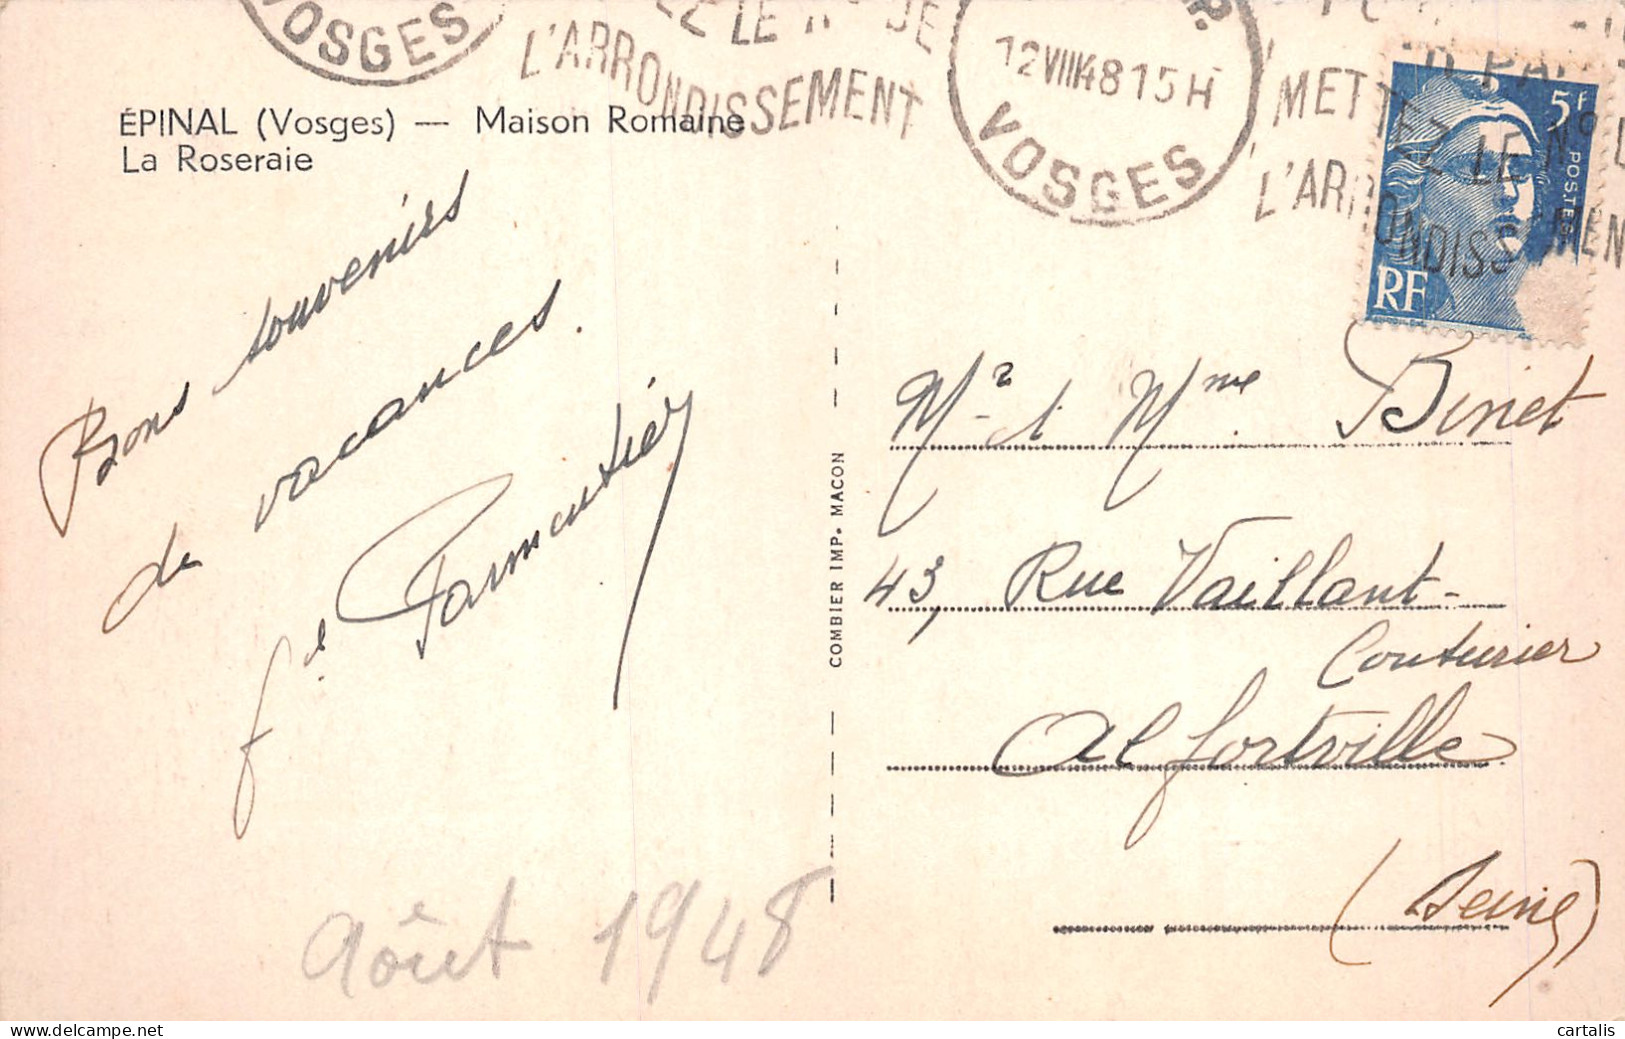 VOSGES
LE N° DE
L'ARRONDISSEMENT
12 VIII 48 15 H
VOSGES
METTEZ LE N°
L'ARRONDISSEMEN
5F
POSTES
RF
ÉPINAL (Vosges) — Maison Romaine
La Roseraie
Bons souvenirs
de vacances.
Parmentier
Août 1948
COMBIER IMP. MACON
Mr et Mme. Binet
43, Rue Vaillant-
Couturier
Alfortville
(Seine)
cartalis